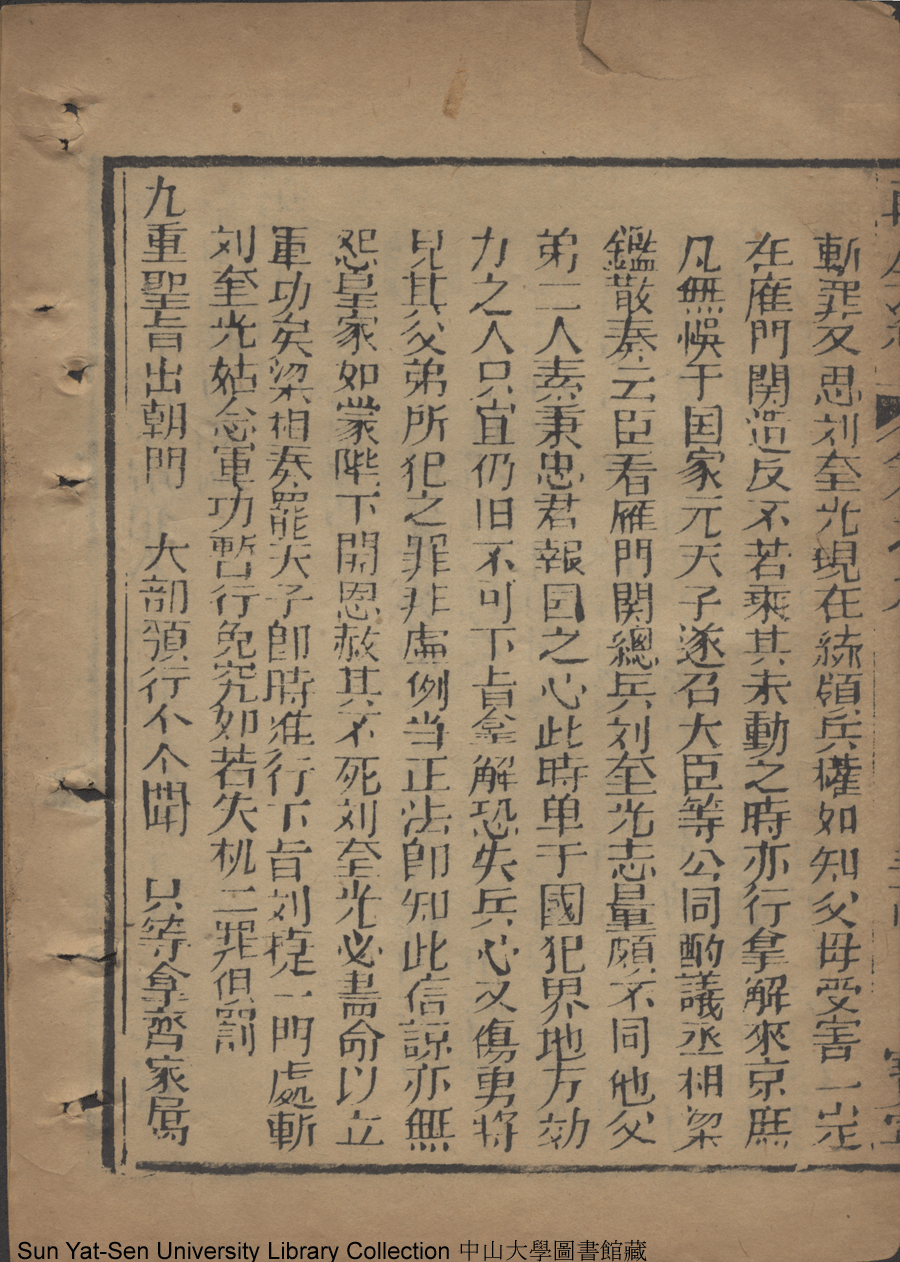 斬罪又思刘奎光現在統領兵權如知父母受害一定
在雁門関造反不若乘其未動之時亦行拿解來京庶
凡無悞于国家元天子遂召大臣等公同酌議丞相梁
鑑散奏云臣看雁門関總兵刘奎光志量頗不同他父
弟二人素秉忠君報国之心此時单于國犯界地方効
力之人只宜仍旧不可下旨拿解恐失兵心又傷勇將
見其父弟所犯之罪非虛例当正法即知此信諒亦無
怨皇家如蒙陛下開恩赦其不死刘奎光必盡命以立
軍功矣梁相奏罷天子即時准行下旨刘捷一門處斬
刘奎光姑念軍功暫行免究如若失机二罪俱罰
九重聖旨出朝門 大部領行个个聞 只等拿齊家属
Sun Yat-Sen University Library Collection 中山大學圖書館藏